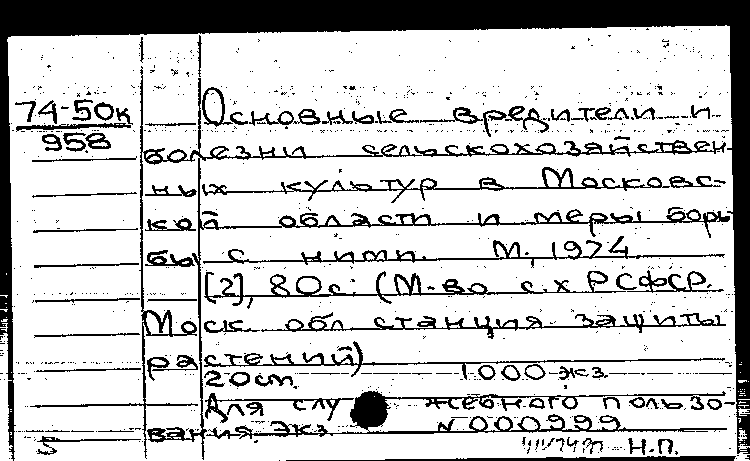 74-50к
958
Основные вредители и
болезни сельскохозяйствен-
ных культур в Московс-
кой области и меры борь
бы с ними. М., 1974
[2], 80с. (М-во с.х РСФСР.
Моск обл станция защиты
растений)
20cm. 1000 экз.
Для слу жебного пользо-
вания. Экз. N 000999.
Н.П.
5